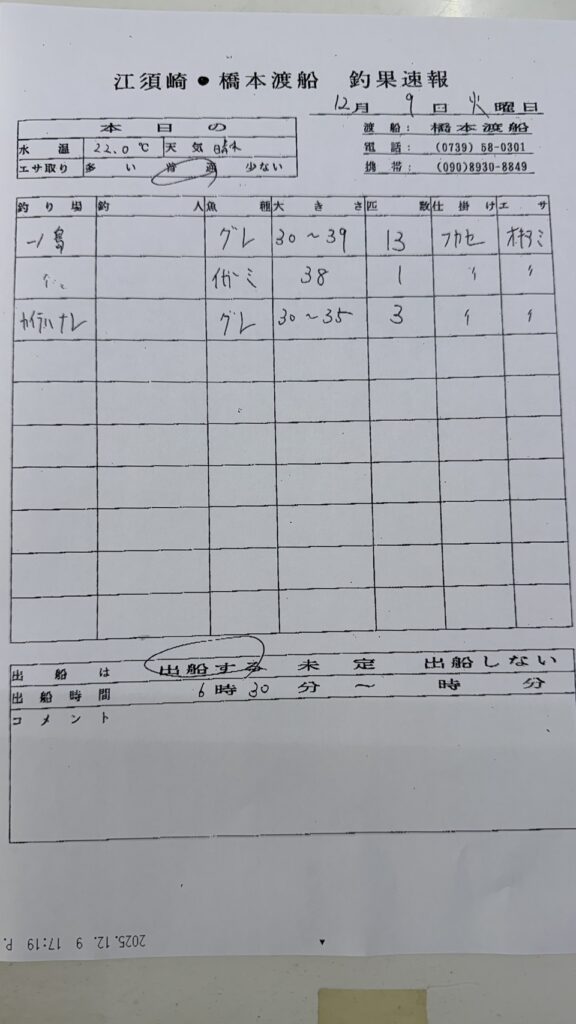 江須崎●橋本渡船 釣果速報
12月 9日 火曜日
本日の
水温 22.0℃ 天気 晴
エサ取り 多い 普通 少ない
渡船: 橋本渡船
電話: (0739) 58-0301
携帯: (090)8930-8849
釣り場 釣人 魚種 大きさ 匹数 仕掛け エサ
一ノ島 グレ 30～39 13 フカセ オキアミ
〃 イガミ 38 1 〃 〃
カイテハナレ グレ 30～35 3 〃 〃
出船は 出船する 未定 出船しない
出船時間 6時30分～ 時 分
コメント
2025.12. 9 17:19 P.